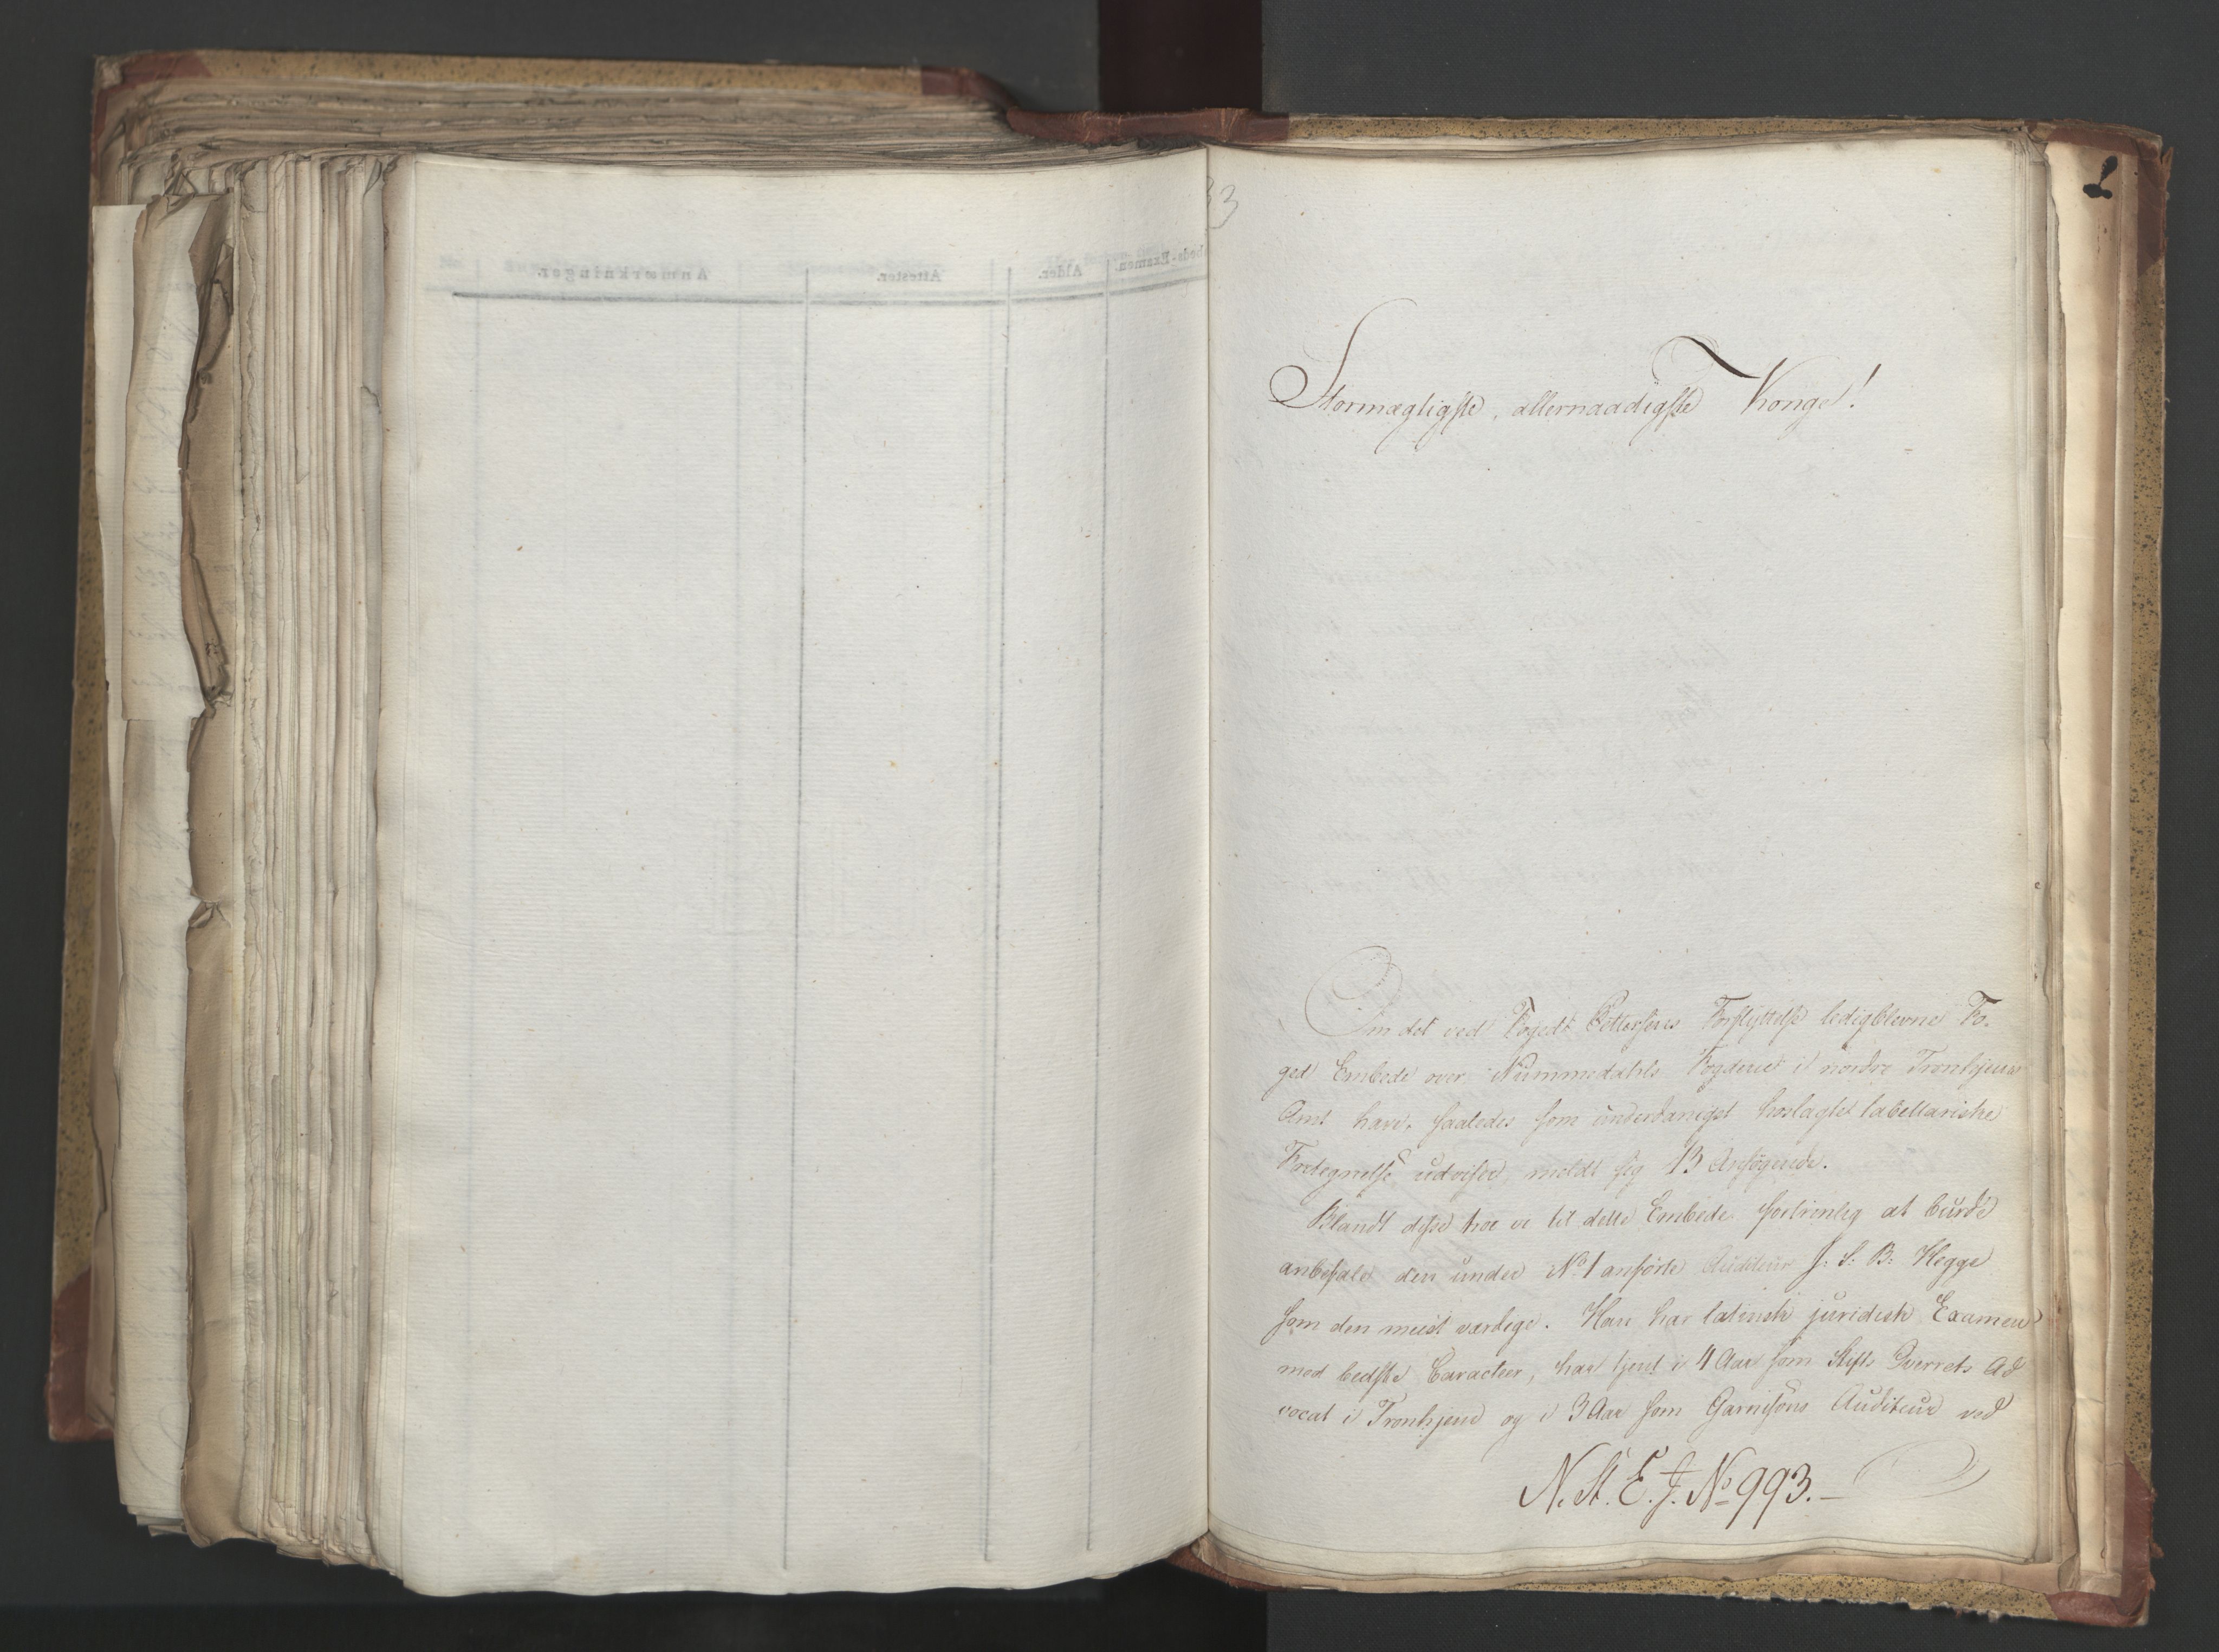 33
Stormægtigste, allernaadigste Konge!
Om det ved Foged Pettersens Forflyttelse ledigblevne Fo-
ged Embede over Nummedahls Fogderie i nordre Tronhjems
Amt have, saaledes som underdanigst hoslagte tabellariske
Fortegnelse udviser, meldt sig 13 Ansøgende.
Blandt disse troe vi til dette Embede fortrinlig at burde
anbefale den under No 1 anførte Auditeur J: S: B: Hegge
som den meest værdige. Han har latinsk juridisk Examen
med bedste Caracteer, har tjent i 4 Aar som Stifts Overrets Ad
vocat i Tronhjem og i 3 Aar som Garnisons Auditeur ved
N. St. E. J. No 993.-